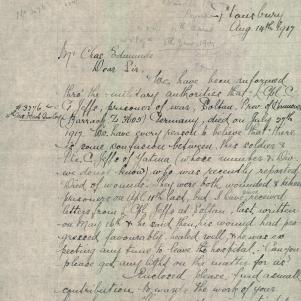 Stansbury
Aug 14th 1917
Mr Chas Edmunds
Dear Sir.
We have been informed
thro the military authorities that L Cpl C
G Jeffs, prisoner of war, Soltau, Prov of Hannover
# 3376
(Barrack No 3609) Germany, died on July 27th
1917. We have every reason to believe that there
is some confusion between this soldier &
Pte C. Jeffs of Yatina (whose number &
we do not know) who was recently reported
Died of wounds. They were both wounded & taken
prisoners on Apl 11th last, but I have received
letters from L Cpl Jeffs at Soltau, last written
on May 16th & he said then, his wound had pro
gressed favourably, healed well, & he was ex
pecting any time to leave the hospital. Can you
please get any light on this matter for us
Enclosed please find a small
contribution towards the work of your